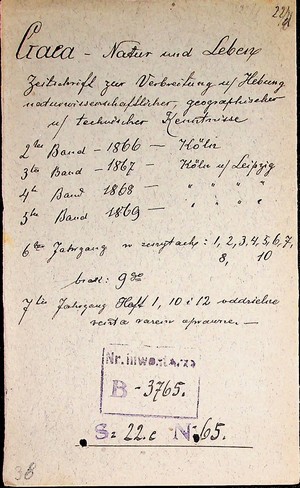 224
Gaea - Natur und Leben
Zeitschrift zur Verbreitung u/ Hebung
naturwissenschaftlicher, geographischer
u/ technischer Kenntnisse
2ter Band - 1866 - Köln
3ter Band - 1867 - Köln u/ Leipzig
4t Band 1868 - " " " "
5ter Band 1869 - " " " "
6ter Jahrgang w zeszytach: 1, 2, 3, 4, 5, 6, 7,
8, 10
brak: 9go
7ter Jahrgang Heft 1, 10 i 12 oddzielnie
reszta razem oprawne. —
Nr. inwentarza
B - 3765.
S: 22.c N: 65.
36